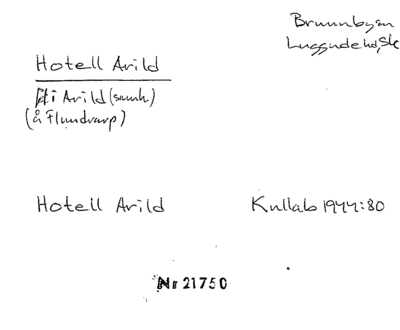 Brunnbyсn
Luggude hd, Sk
Hotell Arild
i Arild (samh.)
(å Flundrarp)
Hotell Arild Kullab 1944:80
Nr 21750